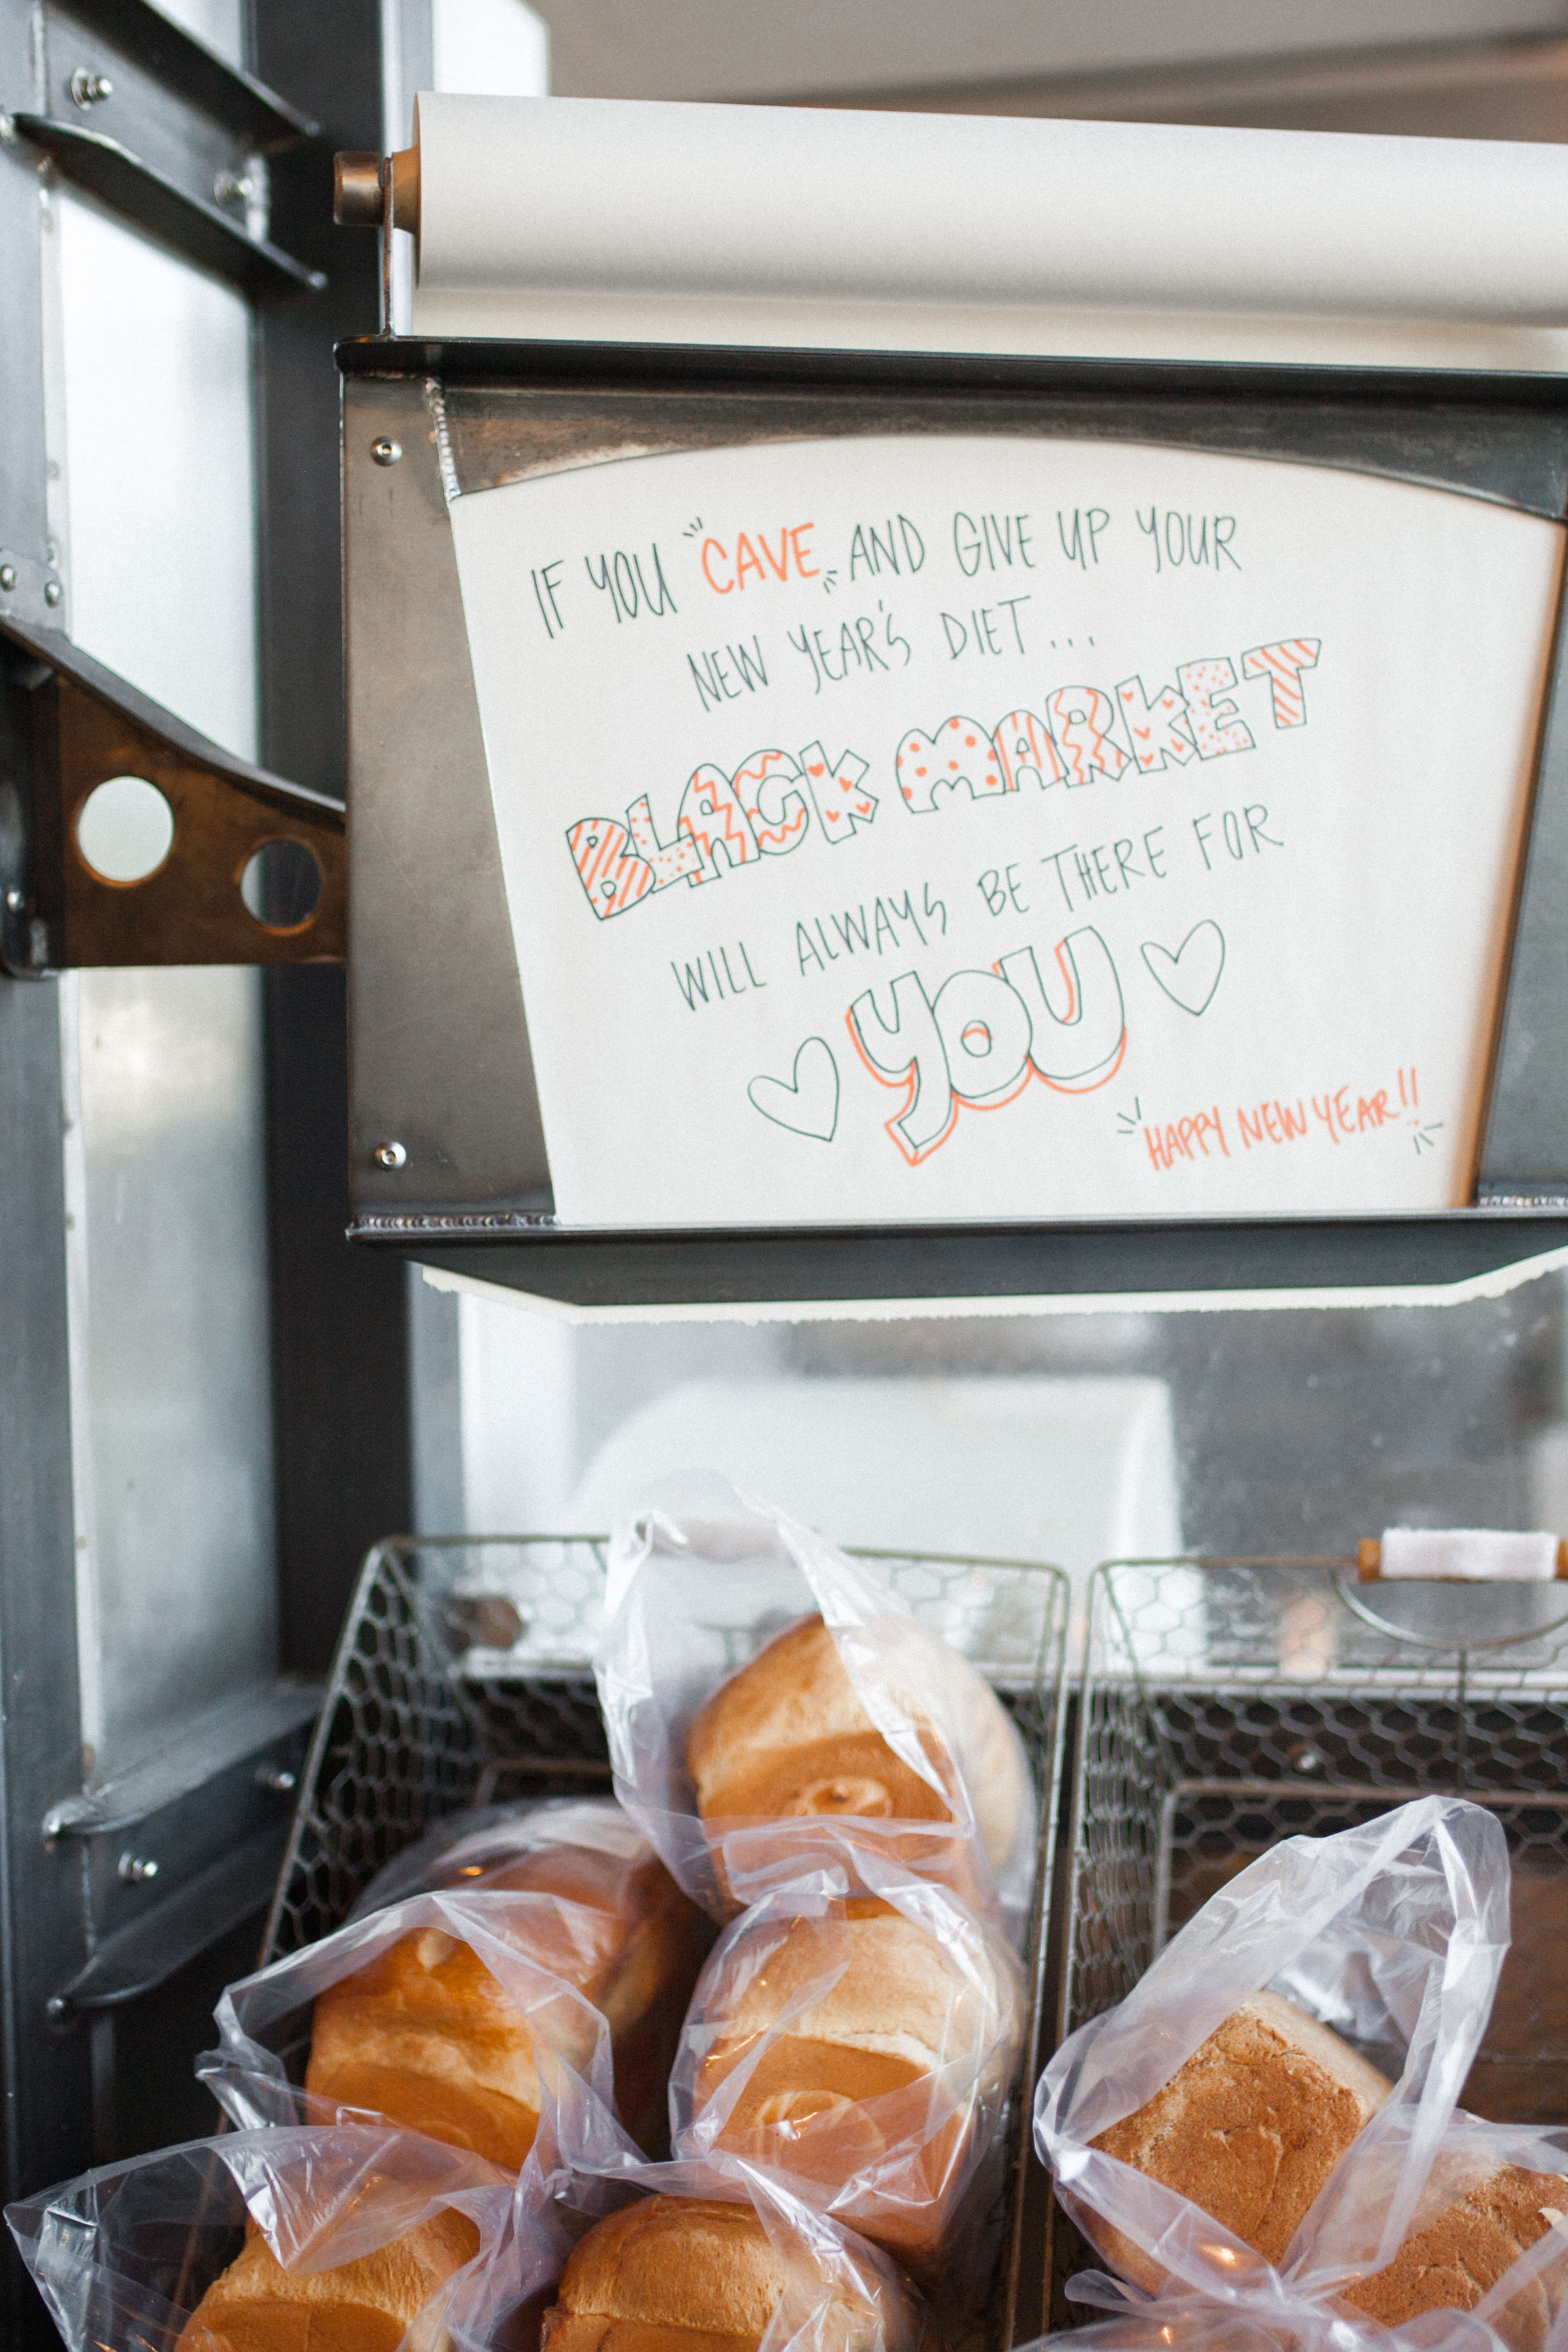 IF YOU "CAVE" AND GIVE UP YOUR
NEW YEAR'S DIET...
BLACK MARKET
WILL ALWAYS BE THERE FOR
YOU
HAPPY NEW YEAR!!